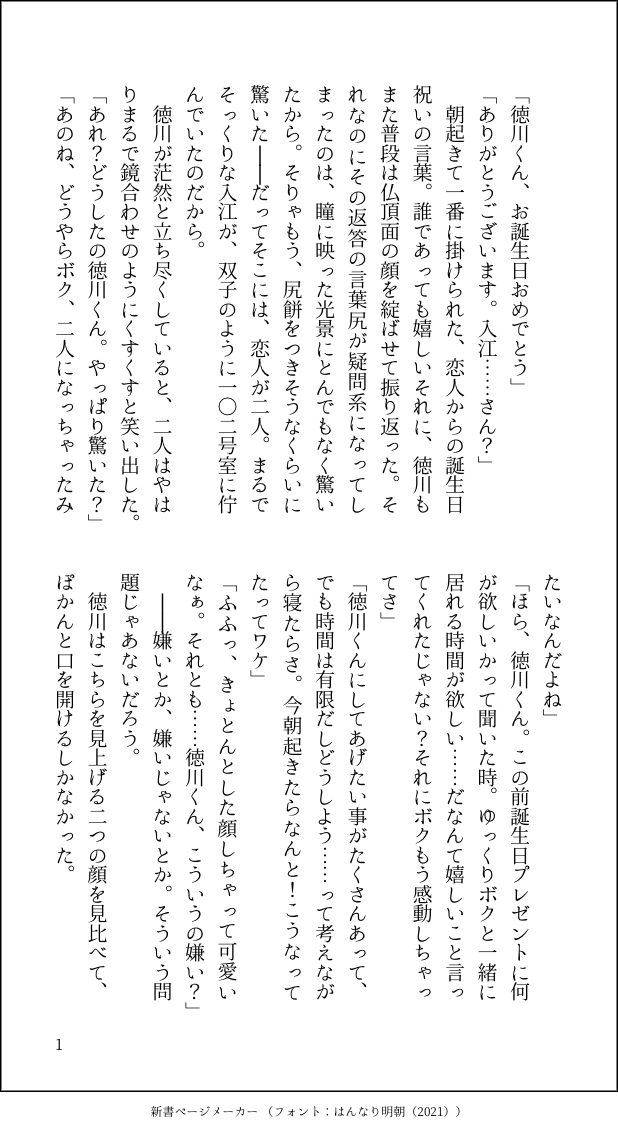 「徳川くん、お誕生日おめでとう」
「ありがとうございます。入江……さん？」
　朝起きて一番に掛けられた、恋人からの誕生日
祝いの言葉。誰であっても嬉しいそれに、徳川も
また普段は仏頂面の顔を綻ばせて振り返った。そ
れなのにその返答の言葉尻が疑問系になってし
まったのは、瞳に映った光景にとんでもなく驚い
たから。そりゃもう、尻餅をつきそうなくらいに
驚いた――だってそこには、恋人が二人。まるで
そっくりな入江が、双子のように一〇二号室に佇
んでいたのだから。
　徳川が茫然と立ち尽くしていると、二人はやは
りまるで鏡合わせのようにくすくすと笑い出した。
「あれ？どうしたの徳川くん。やっぱり驚いた？」
「あのね、どうやらボク、二人になっちゃったみ
たいなんだよね」
「ほら、徳川くん。この前誕生日プレゼントに何
が欲しいかって聞いた時。ゆっくりボクと一緒に
居れる時間が欲しい……だなんて嬉しいこと言っ
てくれたじゃない？それにボクもう感動しちゃっ
てさ」
「徳川くんにしてあげたい事がたくさんあって、
でも時間は有限だしどうしよう……って考えなが
ら寝たらさ。今朝起きたらなんと！こうなって
たってワケ」
「ふふっ、きょとんとした顔しちゃって可愛い
なぁ。それとも……徳川くん、こういうの嫌い？」
　――嫌いとか、嫌いじゃないとか。そういう問
題じゃあないだろう。
　徳川はこちらを見上げる二つの顔を見比べて、
ぽかんと口を開けるしかなかった。
1
新書ページメーカー（フォント：はんなり明朝（2021））